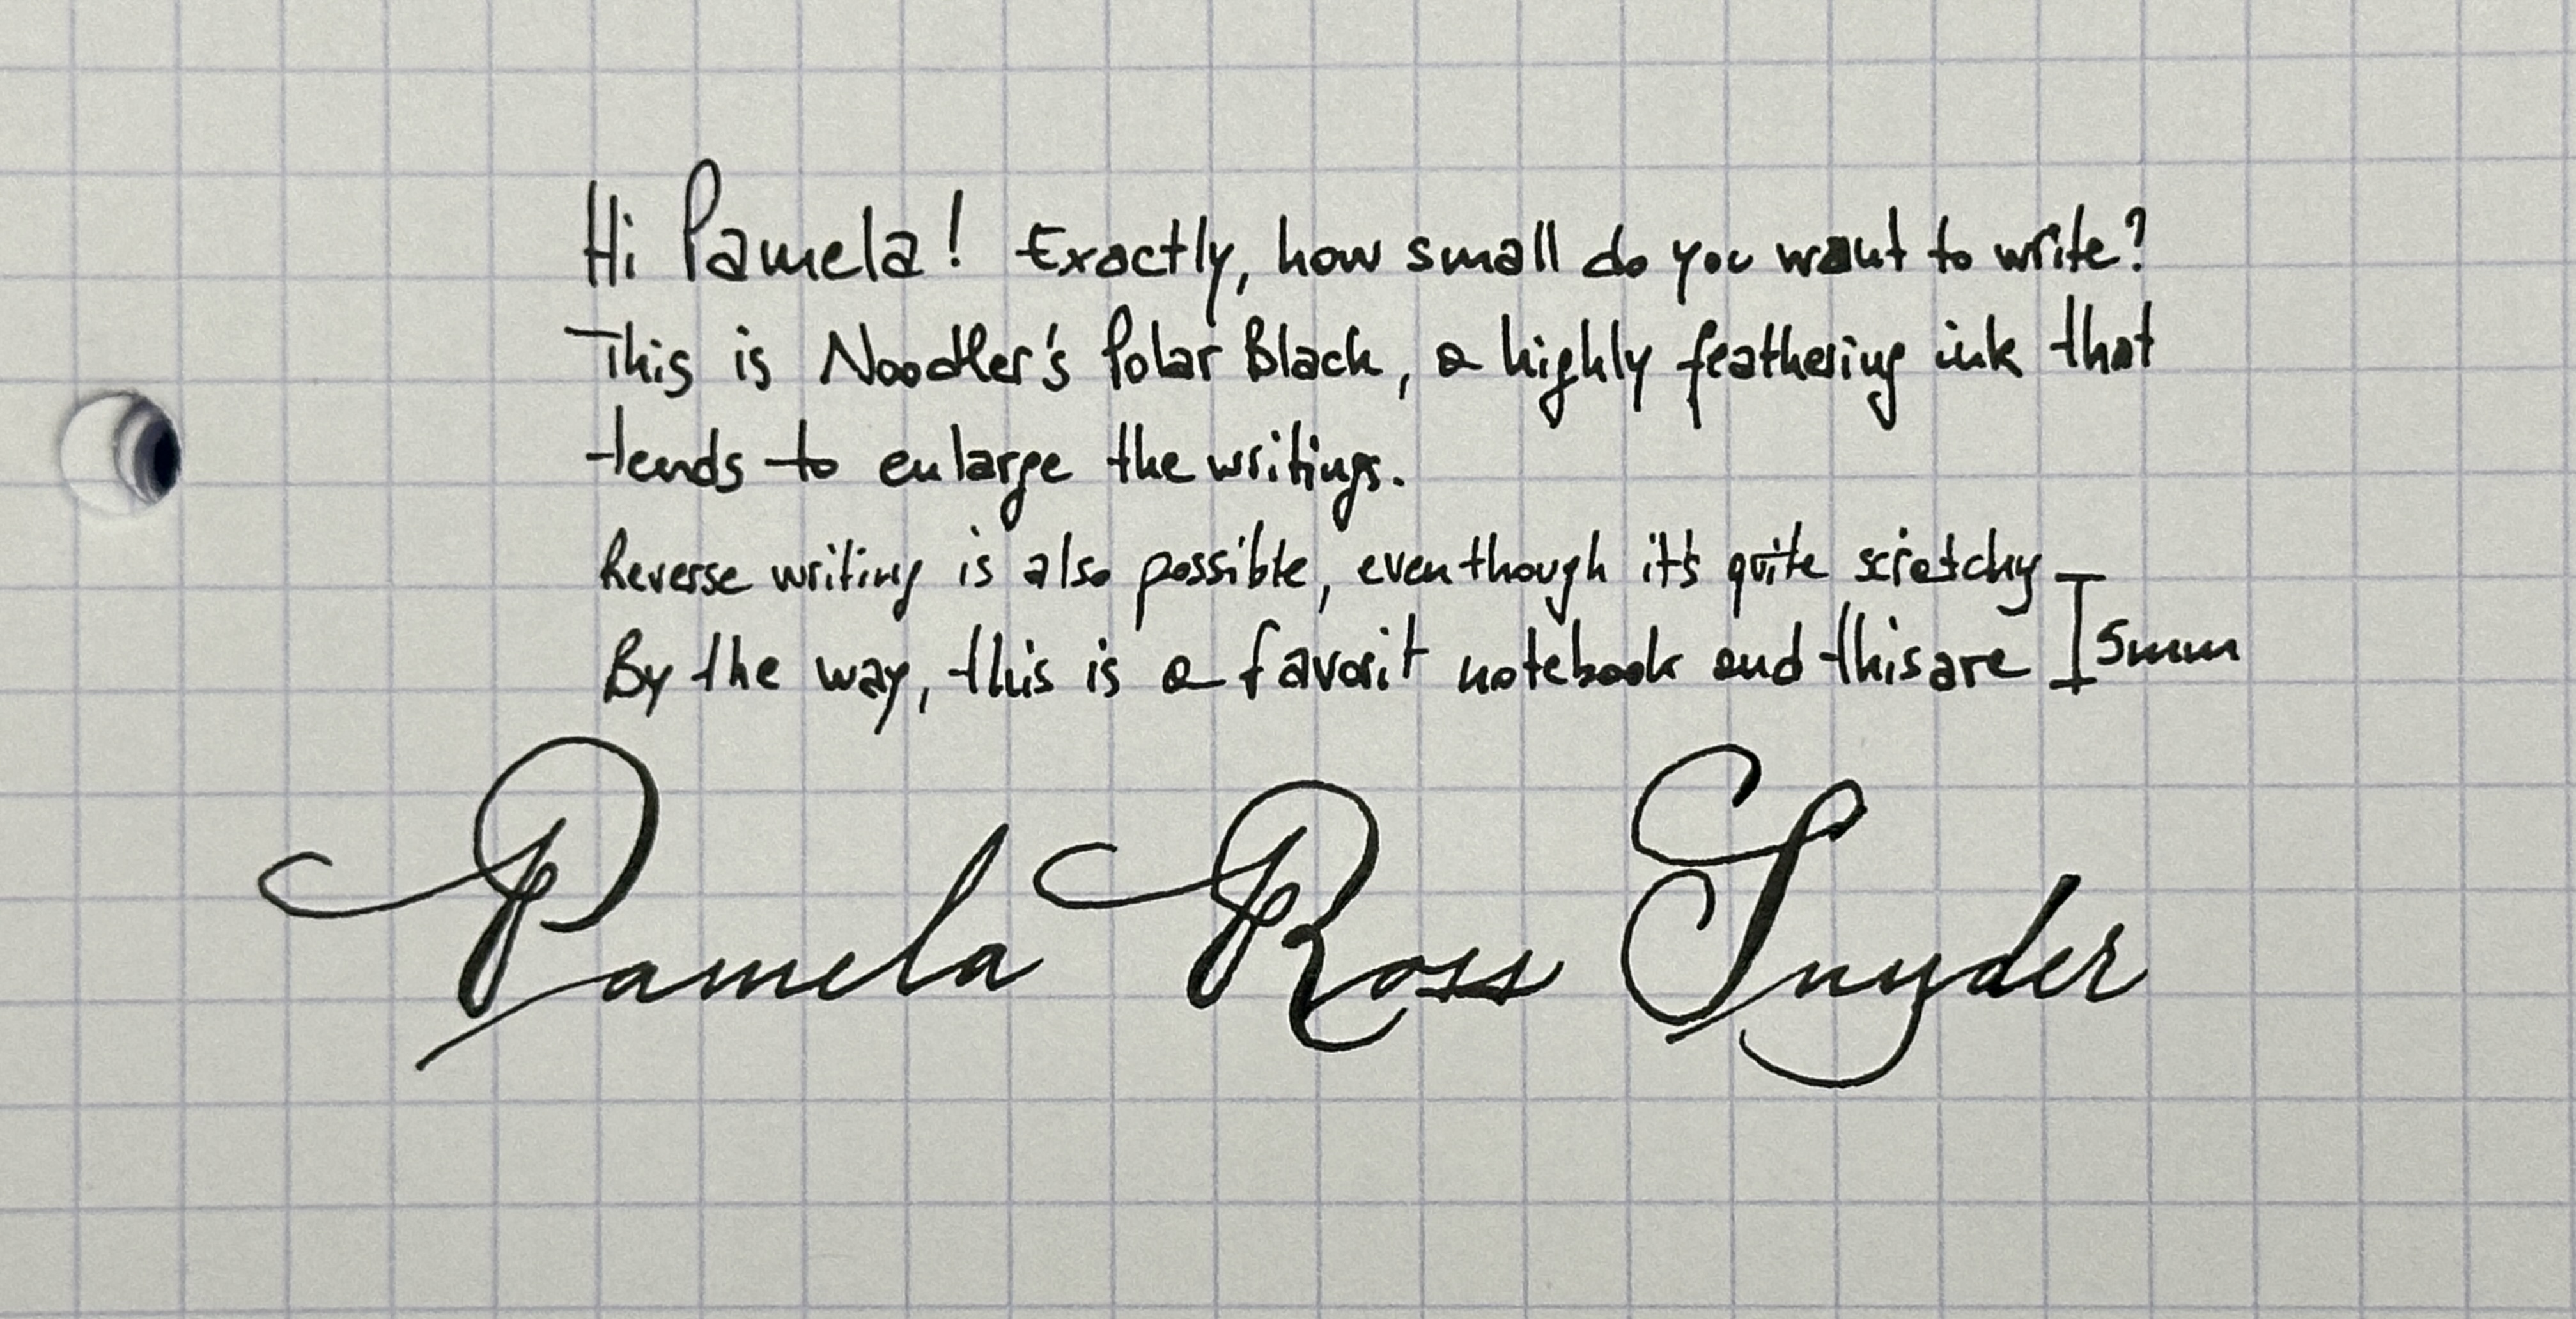 Hi Pamela! Exactly, how small do you want to write?
This is Noodler's Polar Black, a highly feathering ink that
tends to enlarge the writings.
Reverse writing is also possible, eventhough it's quite scratchy
By the way, this is a favorit notebook and this are 5mm
Pamela Ross Snyder